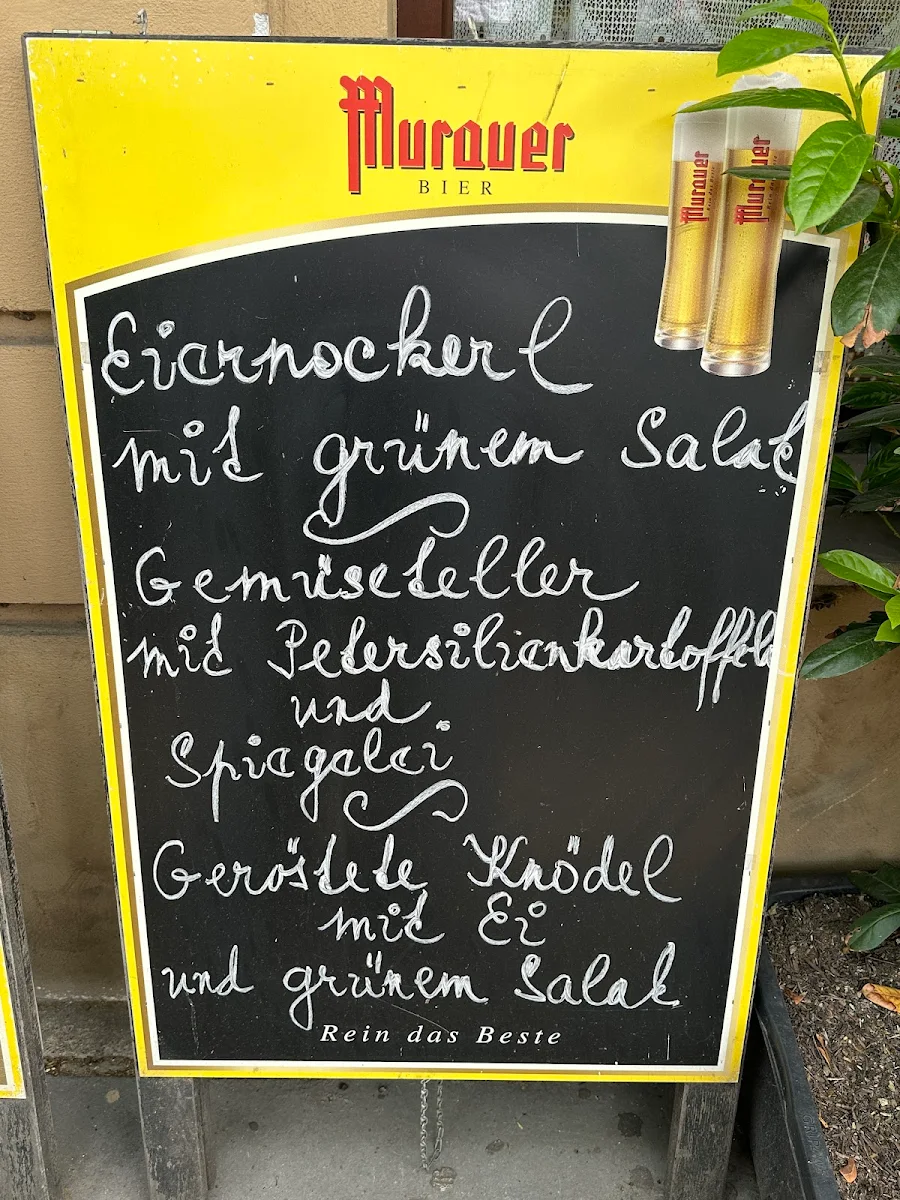 Murauer
BIER
Murauer
Murauer
Eiernockerl
mit grünem Salat
Gemüseteller
mit Petersilienkartoffeln
und
Spiegelei
Geröstete Knödel
mit Ei
und grünem Salat
Rein das Beste